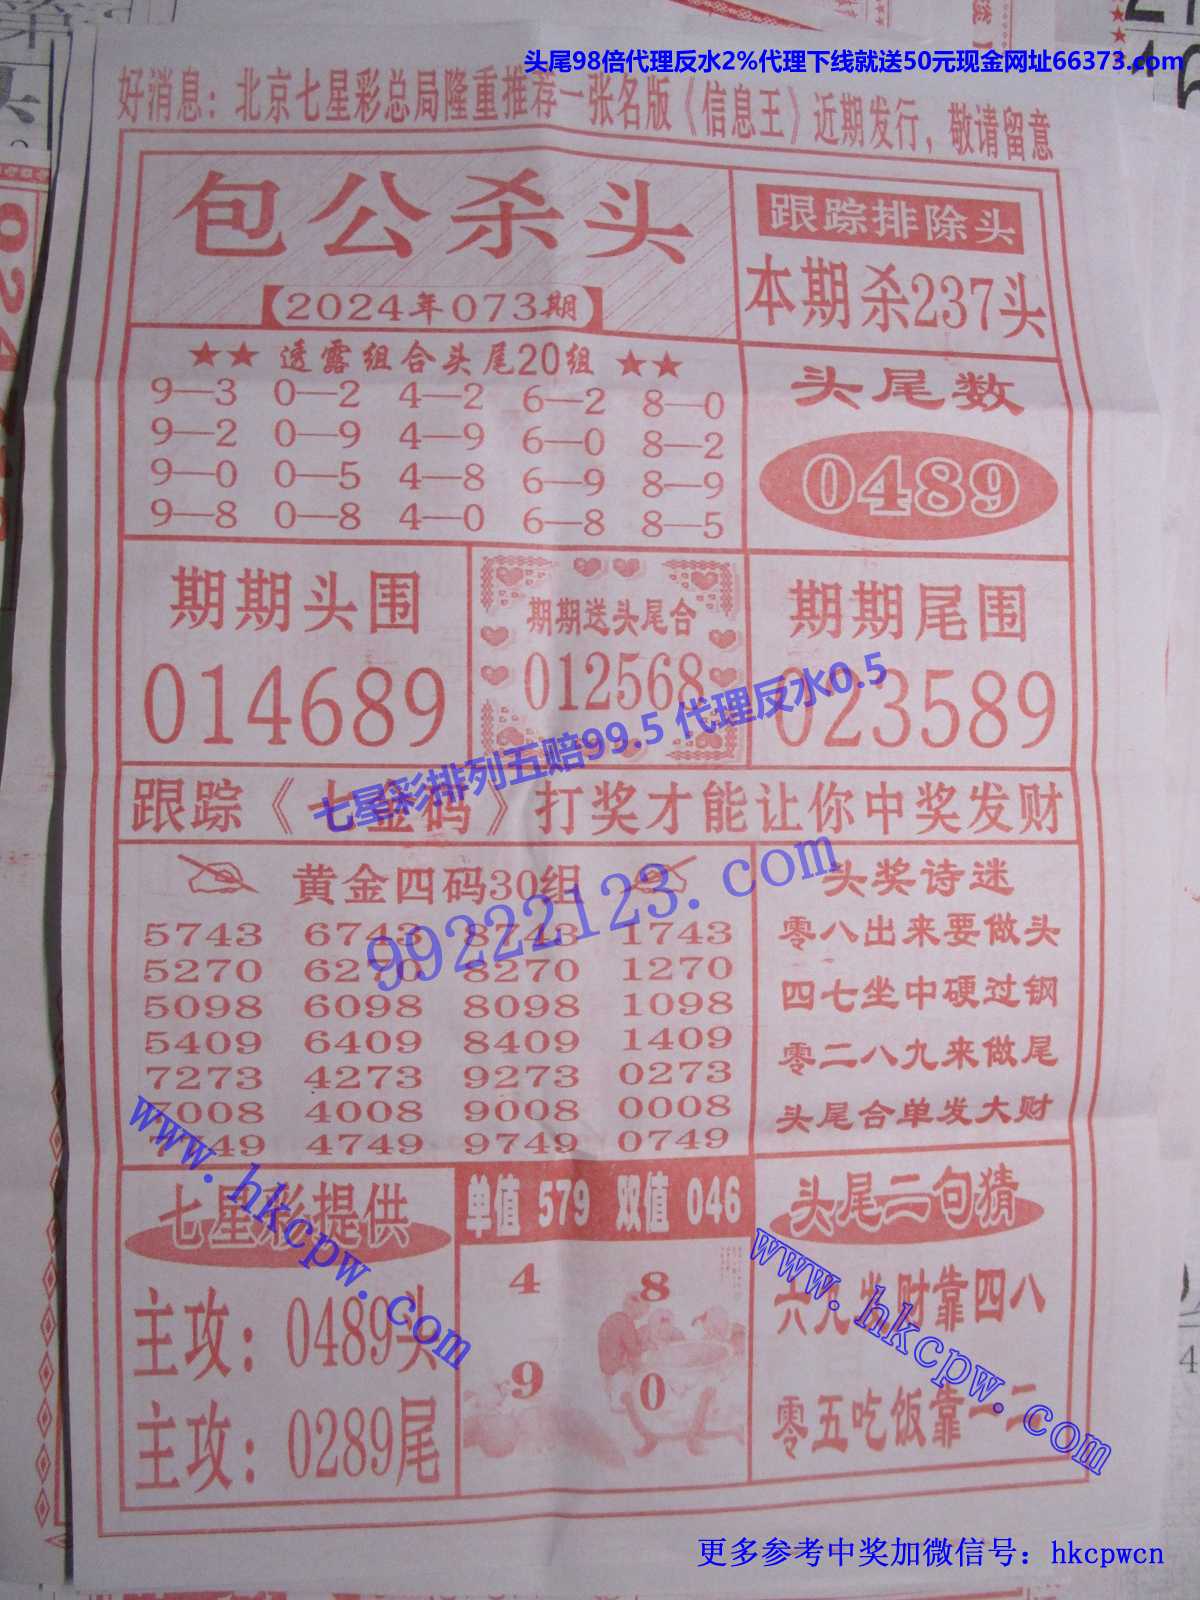 头尾98倍代理反水2%代理下线就送50元现金网址66373.com
好消息：北京七星彩总局隆重推荐一张名版《信息王》近期发行，敬请留意
包公杀头
【2024年073期】
跟踪排除头
本期杀237头
★★ 透露组合头尾20组 ★★
9—3 0—2 4—2 6—2 8—0
9—2 0—9 4—9 6—0 8—2
9—0 0—5 4—8 6—9 8—9
9—8 0—8 4—0 6—8 8—5
头尾数
0489
期期头围
014689
期期送头尾合
012568
期期尾围
023589
七星彩排列五赔99.5 代理反水0.5
跟踪《七金码》打奖才能让你中奖发财
99222123.com
黄金四码30组
5743 6743 8743 1743
5270 6270 8270 1270
5098 6098 8098 1098
5409 6409 8409 1409
7273 4273 9273 0273
7008 4008 9008 0008
7749 4749 9749 0749
头奖诗迷
零八出来要做头
四七坐中硬过钢
零二八九来做尾
头尾合单发大财
www.hkcpw.com
七星彩提供
主攻：0489头
主攻：0289尾
单值 579 双值 046
4 8
9 0
头尾二句猜
六九发财靠四八
零五吃饭靠一二
www.hkcpw.com
更多参考中奖加微信号：hkcpwcn